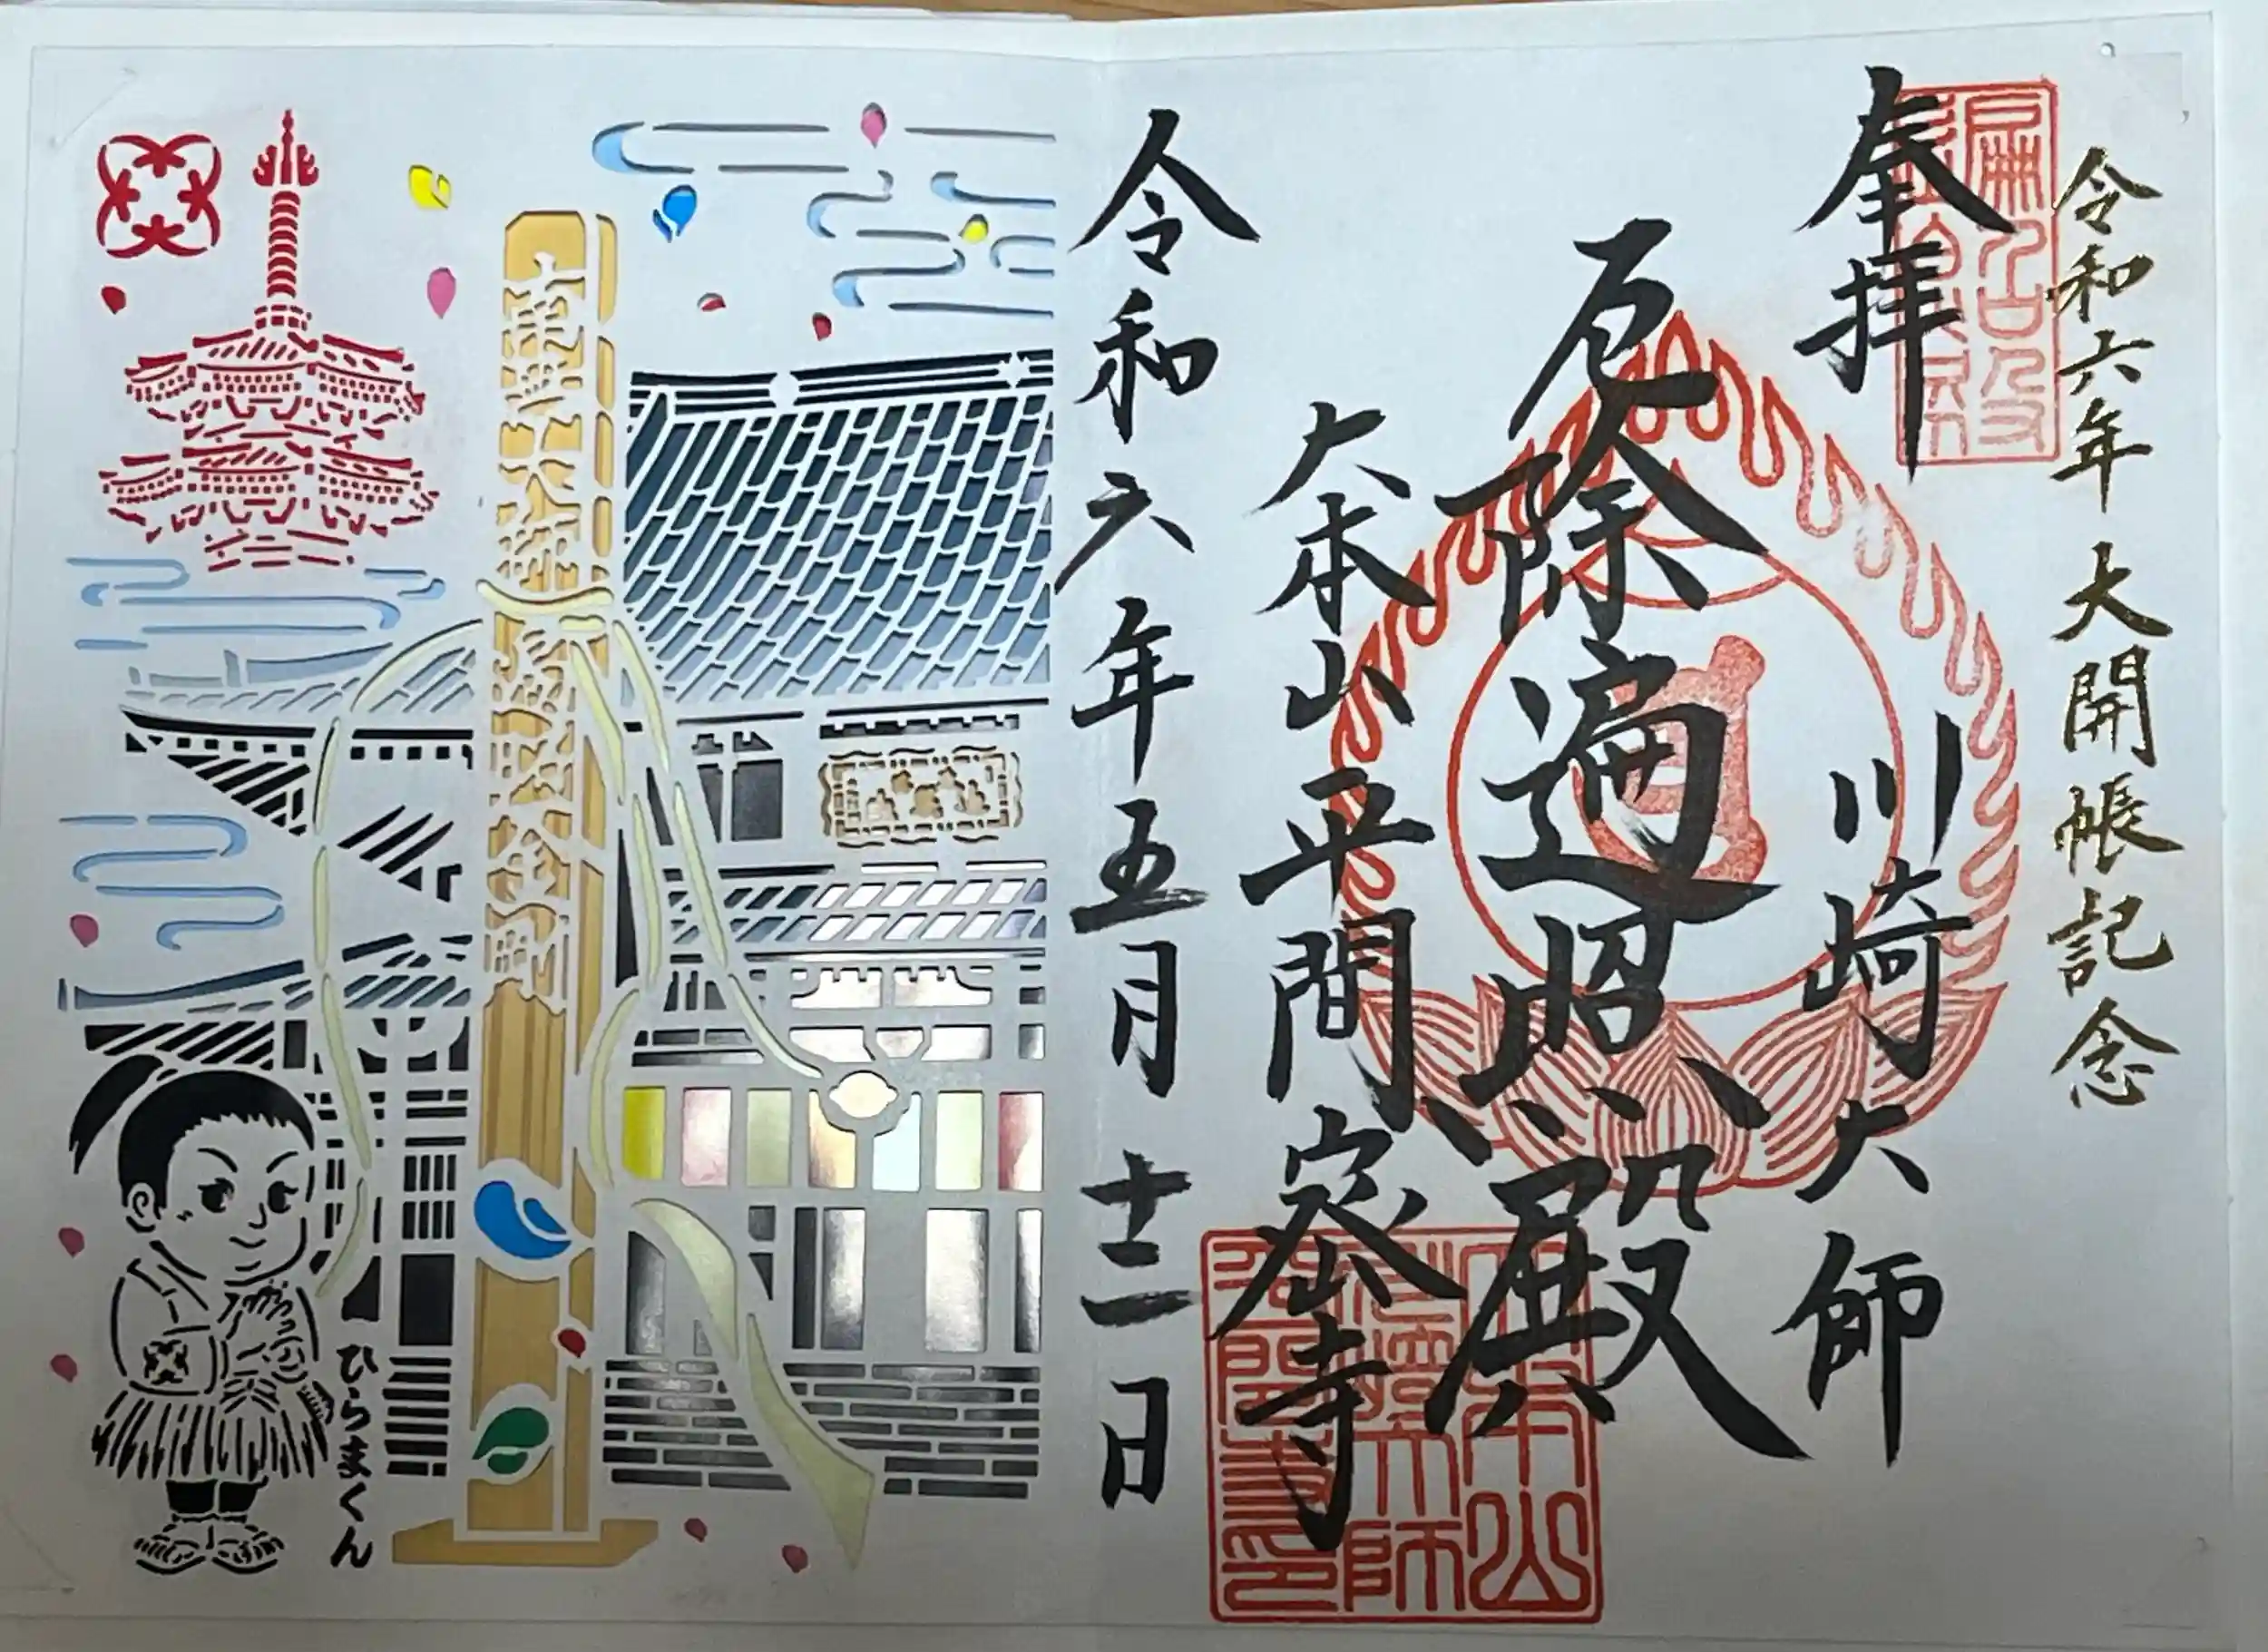 令和六年 大開帳記念
奉拝
川崎大師
厄除遍照殿
大本山 平間密寺
令和六年五月十二日
南無大師遍照金剛
ひらまくん